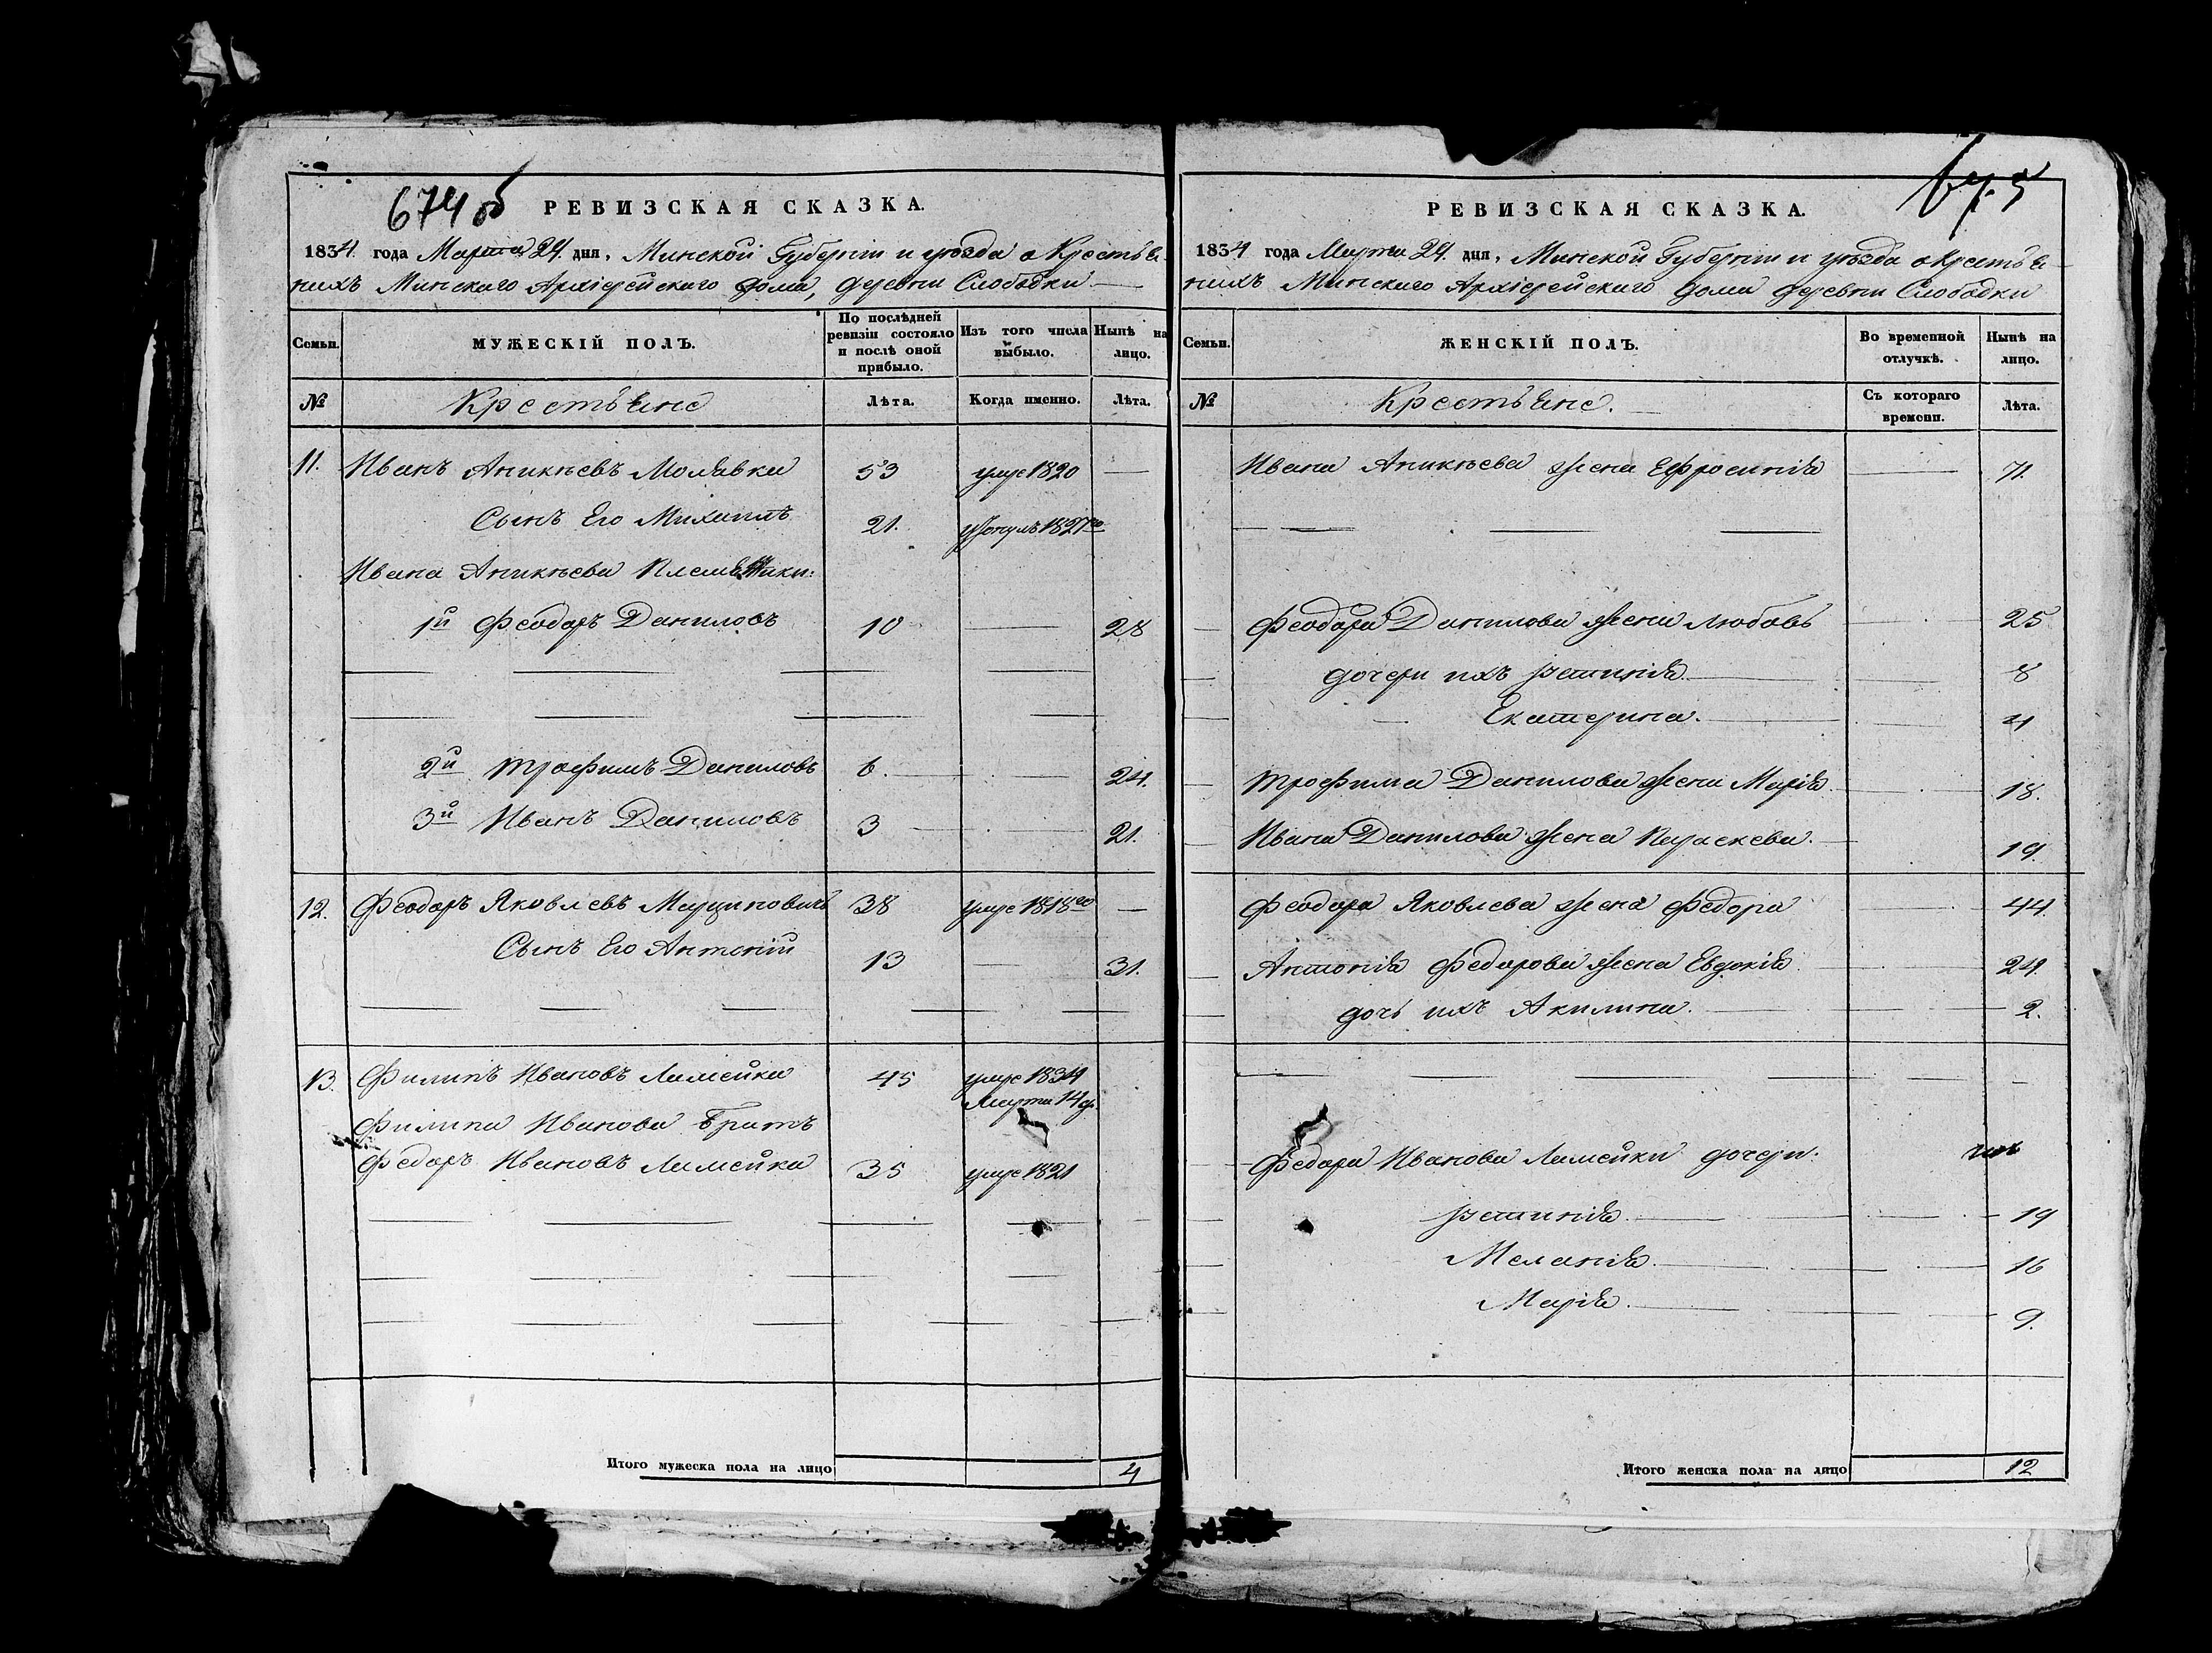 674 об
РЕВИЗСКАЯ СКАЗКА.
1834 года Марта 24 дня, Минской Губерніи и уѣзда о Крестья-
нихъ Минскаго Архіерейскаго дома, деревни Слободки
Семьи.
МУЖЕСКІЙ ПОЛЪ.
По послѣдней ревизіи состояло и послѣ оной прибыло.
Изъ того числа выбыло.
Нынѣ на лицо.
№
Крестьяне
Лѣта.
Когда именно.
Лѣта.
11. Иванъ Аникѣевъ Молявка 53 умре 1820 —
Сынъ Его Михаилъ 21. утонулъ 1827го
Ивана Аникѣева Племянники:
1й Феодоръ Даниловъ 10 — 28
2й Трофимъ Даниловъ 6. — 24.
3й Иванъ Даниловъ 3 — 21.
12. Феодоръ Яковлевъ Марциновичъ 38 умре 1818го —
Сынъ Его Антоній 13 — 31.
13. Филипъ Ивановъ Лимейка 45 умре 1834
Марта 14 д.
Филипа Иванова Братъ
Федоръ Ивановъ Лимейка 35 умре 1821
Итого мужеска пола на лицо 4
675
РЕВИЗСКАЯ СКАЗКА.
1834 года Марта 24 дня, Минской Губерніи и уѣзда о Крестья-
нихъ Минскаго Архіерейскаго дома деревни Слободки
Семьи.
ЖЕНСКІЙ ПОЛЪ.
Во временной отлучкѣ.
Нынѣ на лицо.
№
Крестьяне.
Съ котораго времени.
Лѣта.
Ивана Аникѣева жена Ефросинія — 71.
Феодора Данилова жена Любовь 25
дочери ихъ Устинія 8
Екатерина. 4
Трофима Данилова жена Марія 18.
Ивана Данилова жена Параскева. 19.
Феодора Яковлева жена Федора 44.
Антонія Федорова жена Евдокія 24.
дочь ихъ Акилина. 2.
Федора Иванова Лимейки дочери:
Устинія 19
Меланія 16
Марія 9.
Итого женска пола на лицо 12